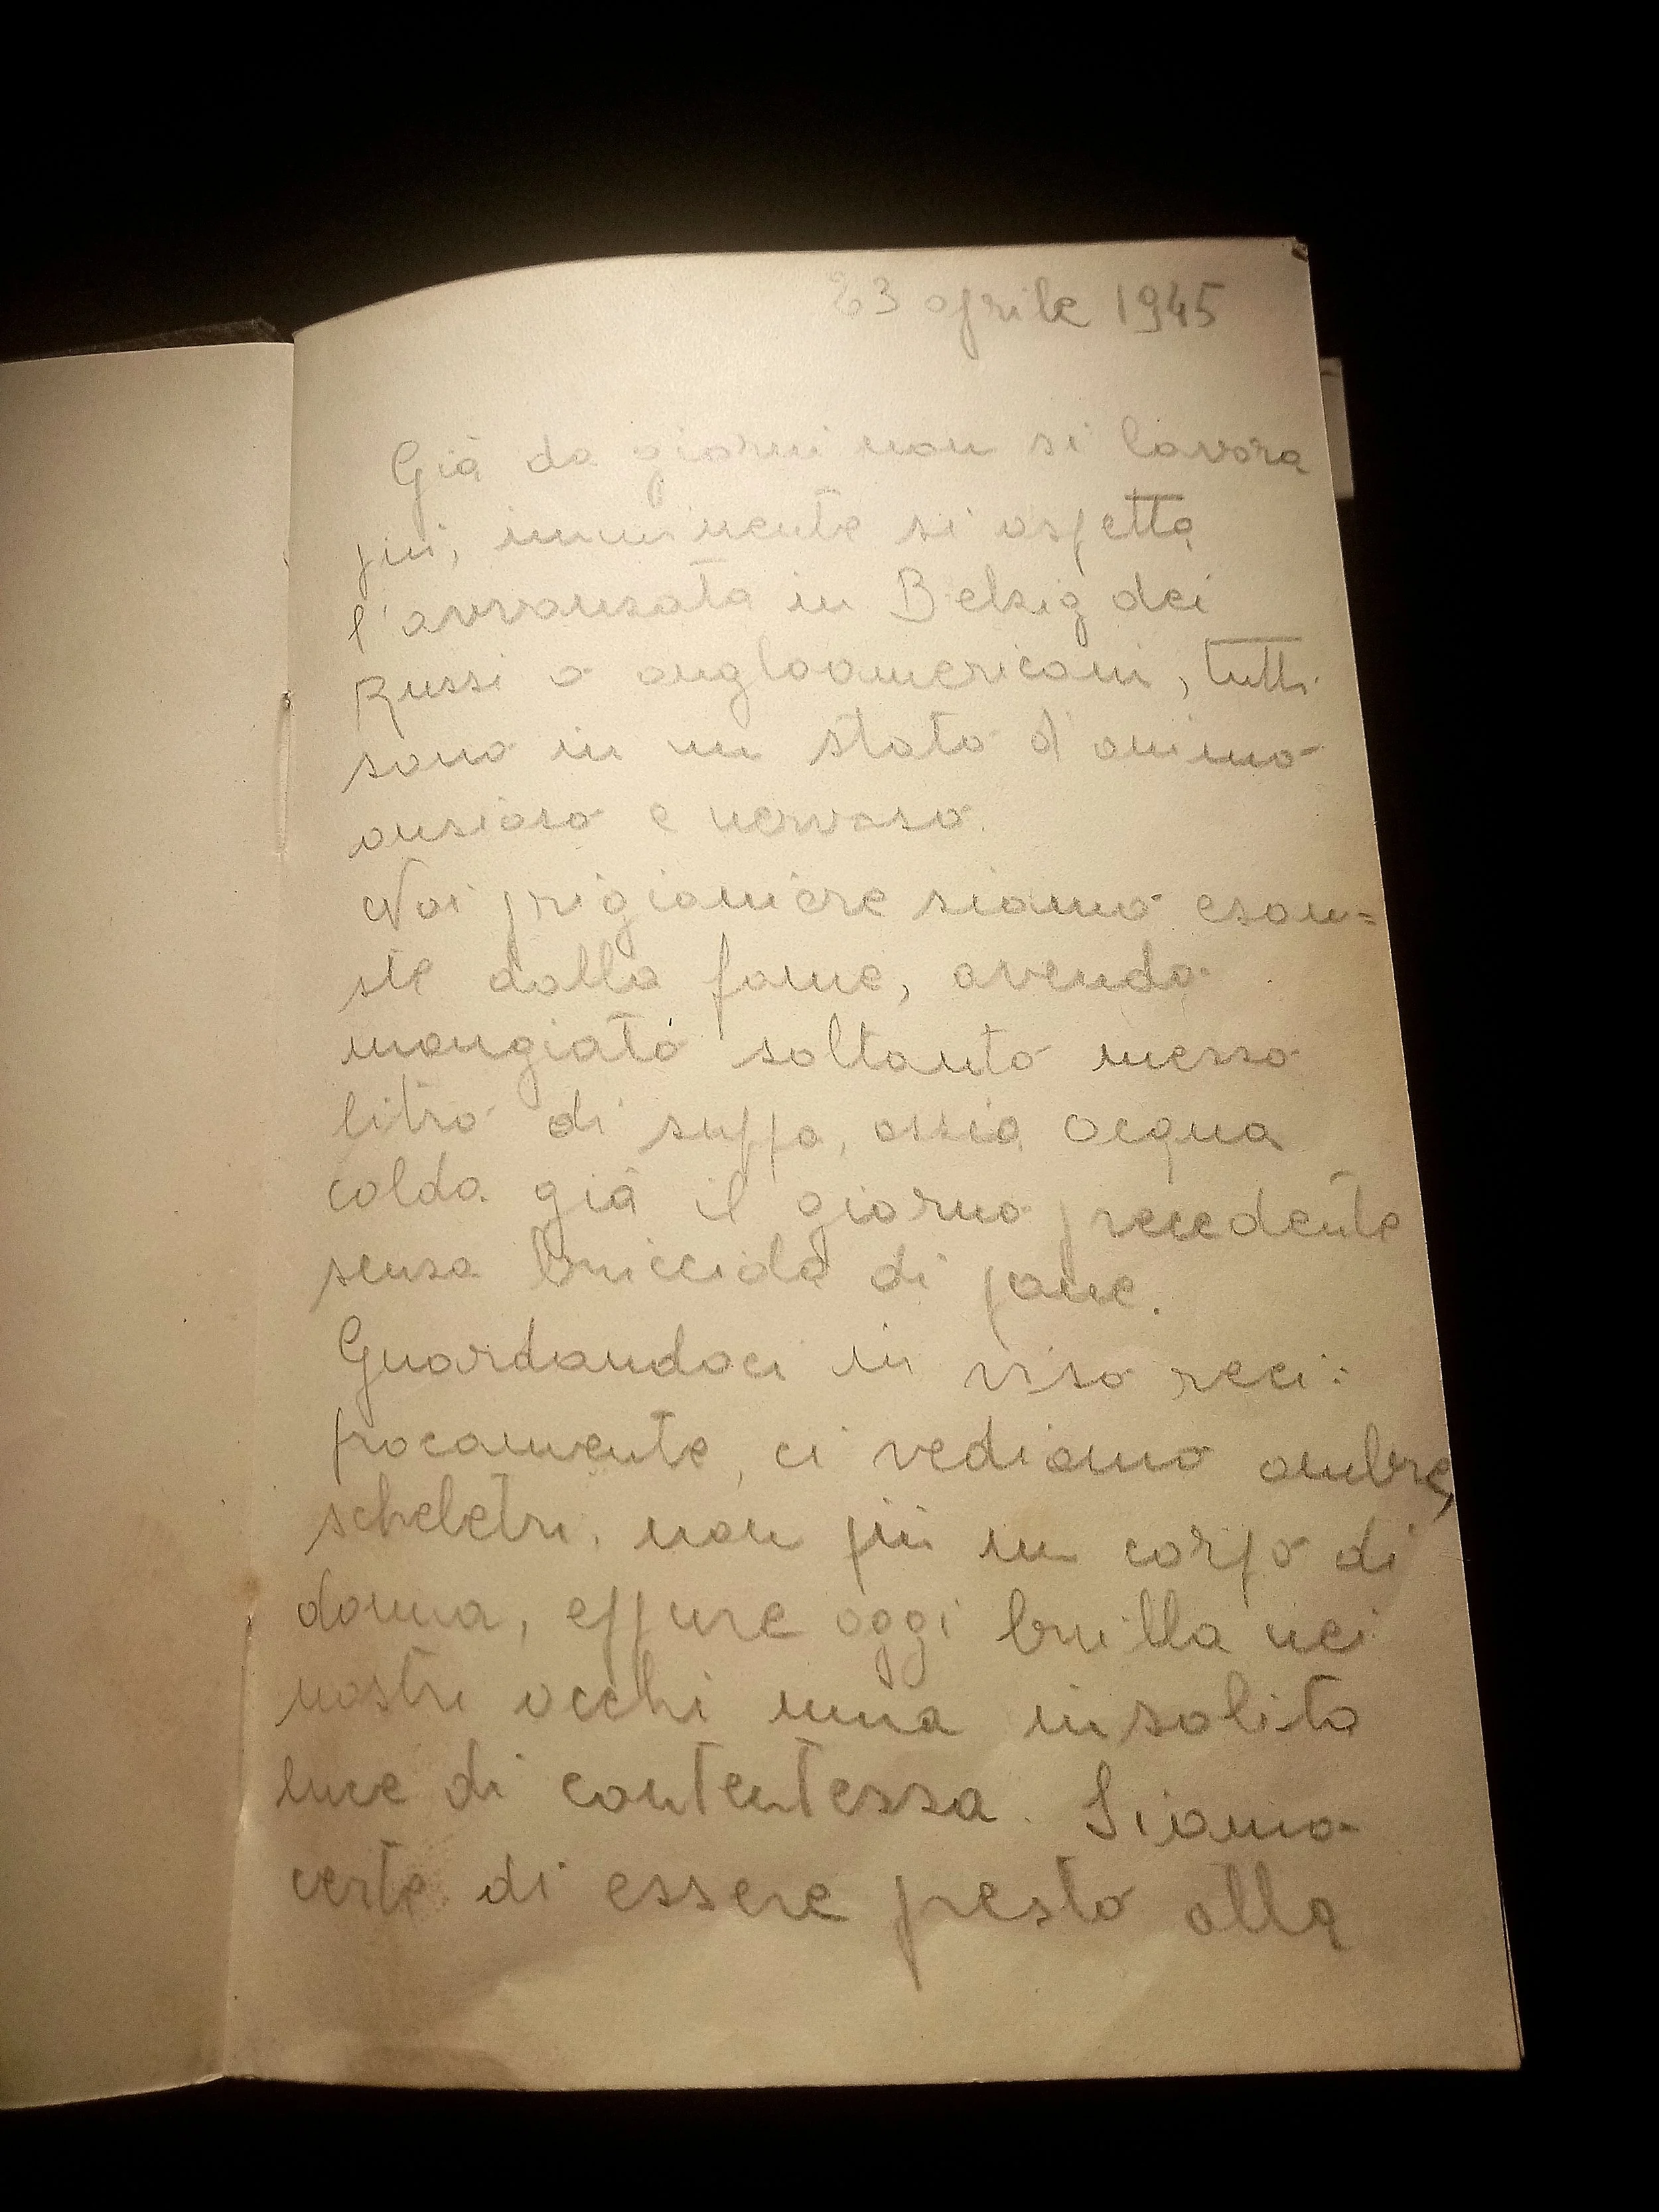 23 aprile 1945
Già da giorni non si lavora
più, imminente si aspetta
l'avvansata in Belsig dei
Russi o angloamericani, tutti
sono in un stato d'animo
ansioso e nervoso.
Noi prigioniere siamo esau=
ste dalla fame, avendo
mangiato soltanto messo
litro di suppa, ossia acqua
calda già il giorno precedente
sensa briccida di pane.
Guardandoci in viso reci=
procamente, ci vediamo ombre,
scheletri, non più un corpo di
donna, eppure oggi brilla nei
nostri occhi una insolita
luce di contentessa. Siamo
certe di essere presto alla